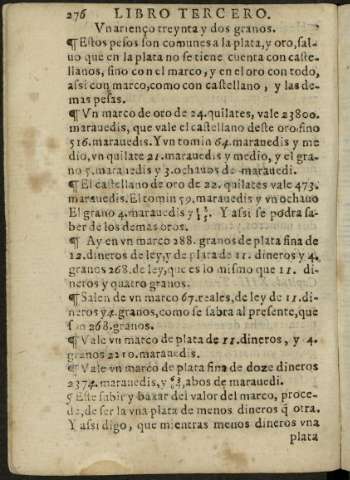 276 LIBRO TERCERO.
Vn arienço treynta y dos granos.
¶ Estos pesos son comunes a la plata, y oro, sal-
uo que en la plata no se tiene cuenta con caste-
llanos, sino con el marco, y en el oro con todo,
assi con marco, como con castellano, y las de-
mas pesas.
¶ Vn marco de oro de 24. quilates, vale 23800.
marauedis, que vale el castellano deste oro fino
516. marauedis. Y vn tomin 64. marauedis y me
dio, vn quilate 21. marauedis y medio, y el gra-
no 5. marauedis y 3. ochauos de marauedi.
¶ El castellano de oro de 22. quilates vale 473.
marauedis. El tomin 59. marauedis y vn ochauo
El grano 4. marauedis y Y assi se podra sa-
ber de los demas oros.
¶ Ay en vn marco 288. granos de plata fina de
12. dineros de ley, y de plata de 11. dineros y 4.
granos 268. de ley, que es lo mismo que 11. di-
neros y quatro granos.
¶ Salen de vn marco 67. reales, de ley de 11. di-
neros y 4. granos, como se sabra al presente, que
son 268. granos.
¶ Vale vn marco de plata de 11. dineros, y 4.
granos 2210. marauedis.
¶ Vale vn marco de plata fina de doze dineros
2374. marauedis, y abos de marauedi.
Este subir y baxar del valor del marco, proce-
de, de ser la vna plata de menos dineros q̃ otra.
Y assi digo, que mientras menos dineros vna
plata